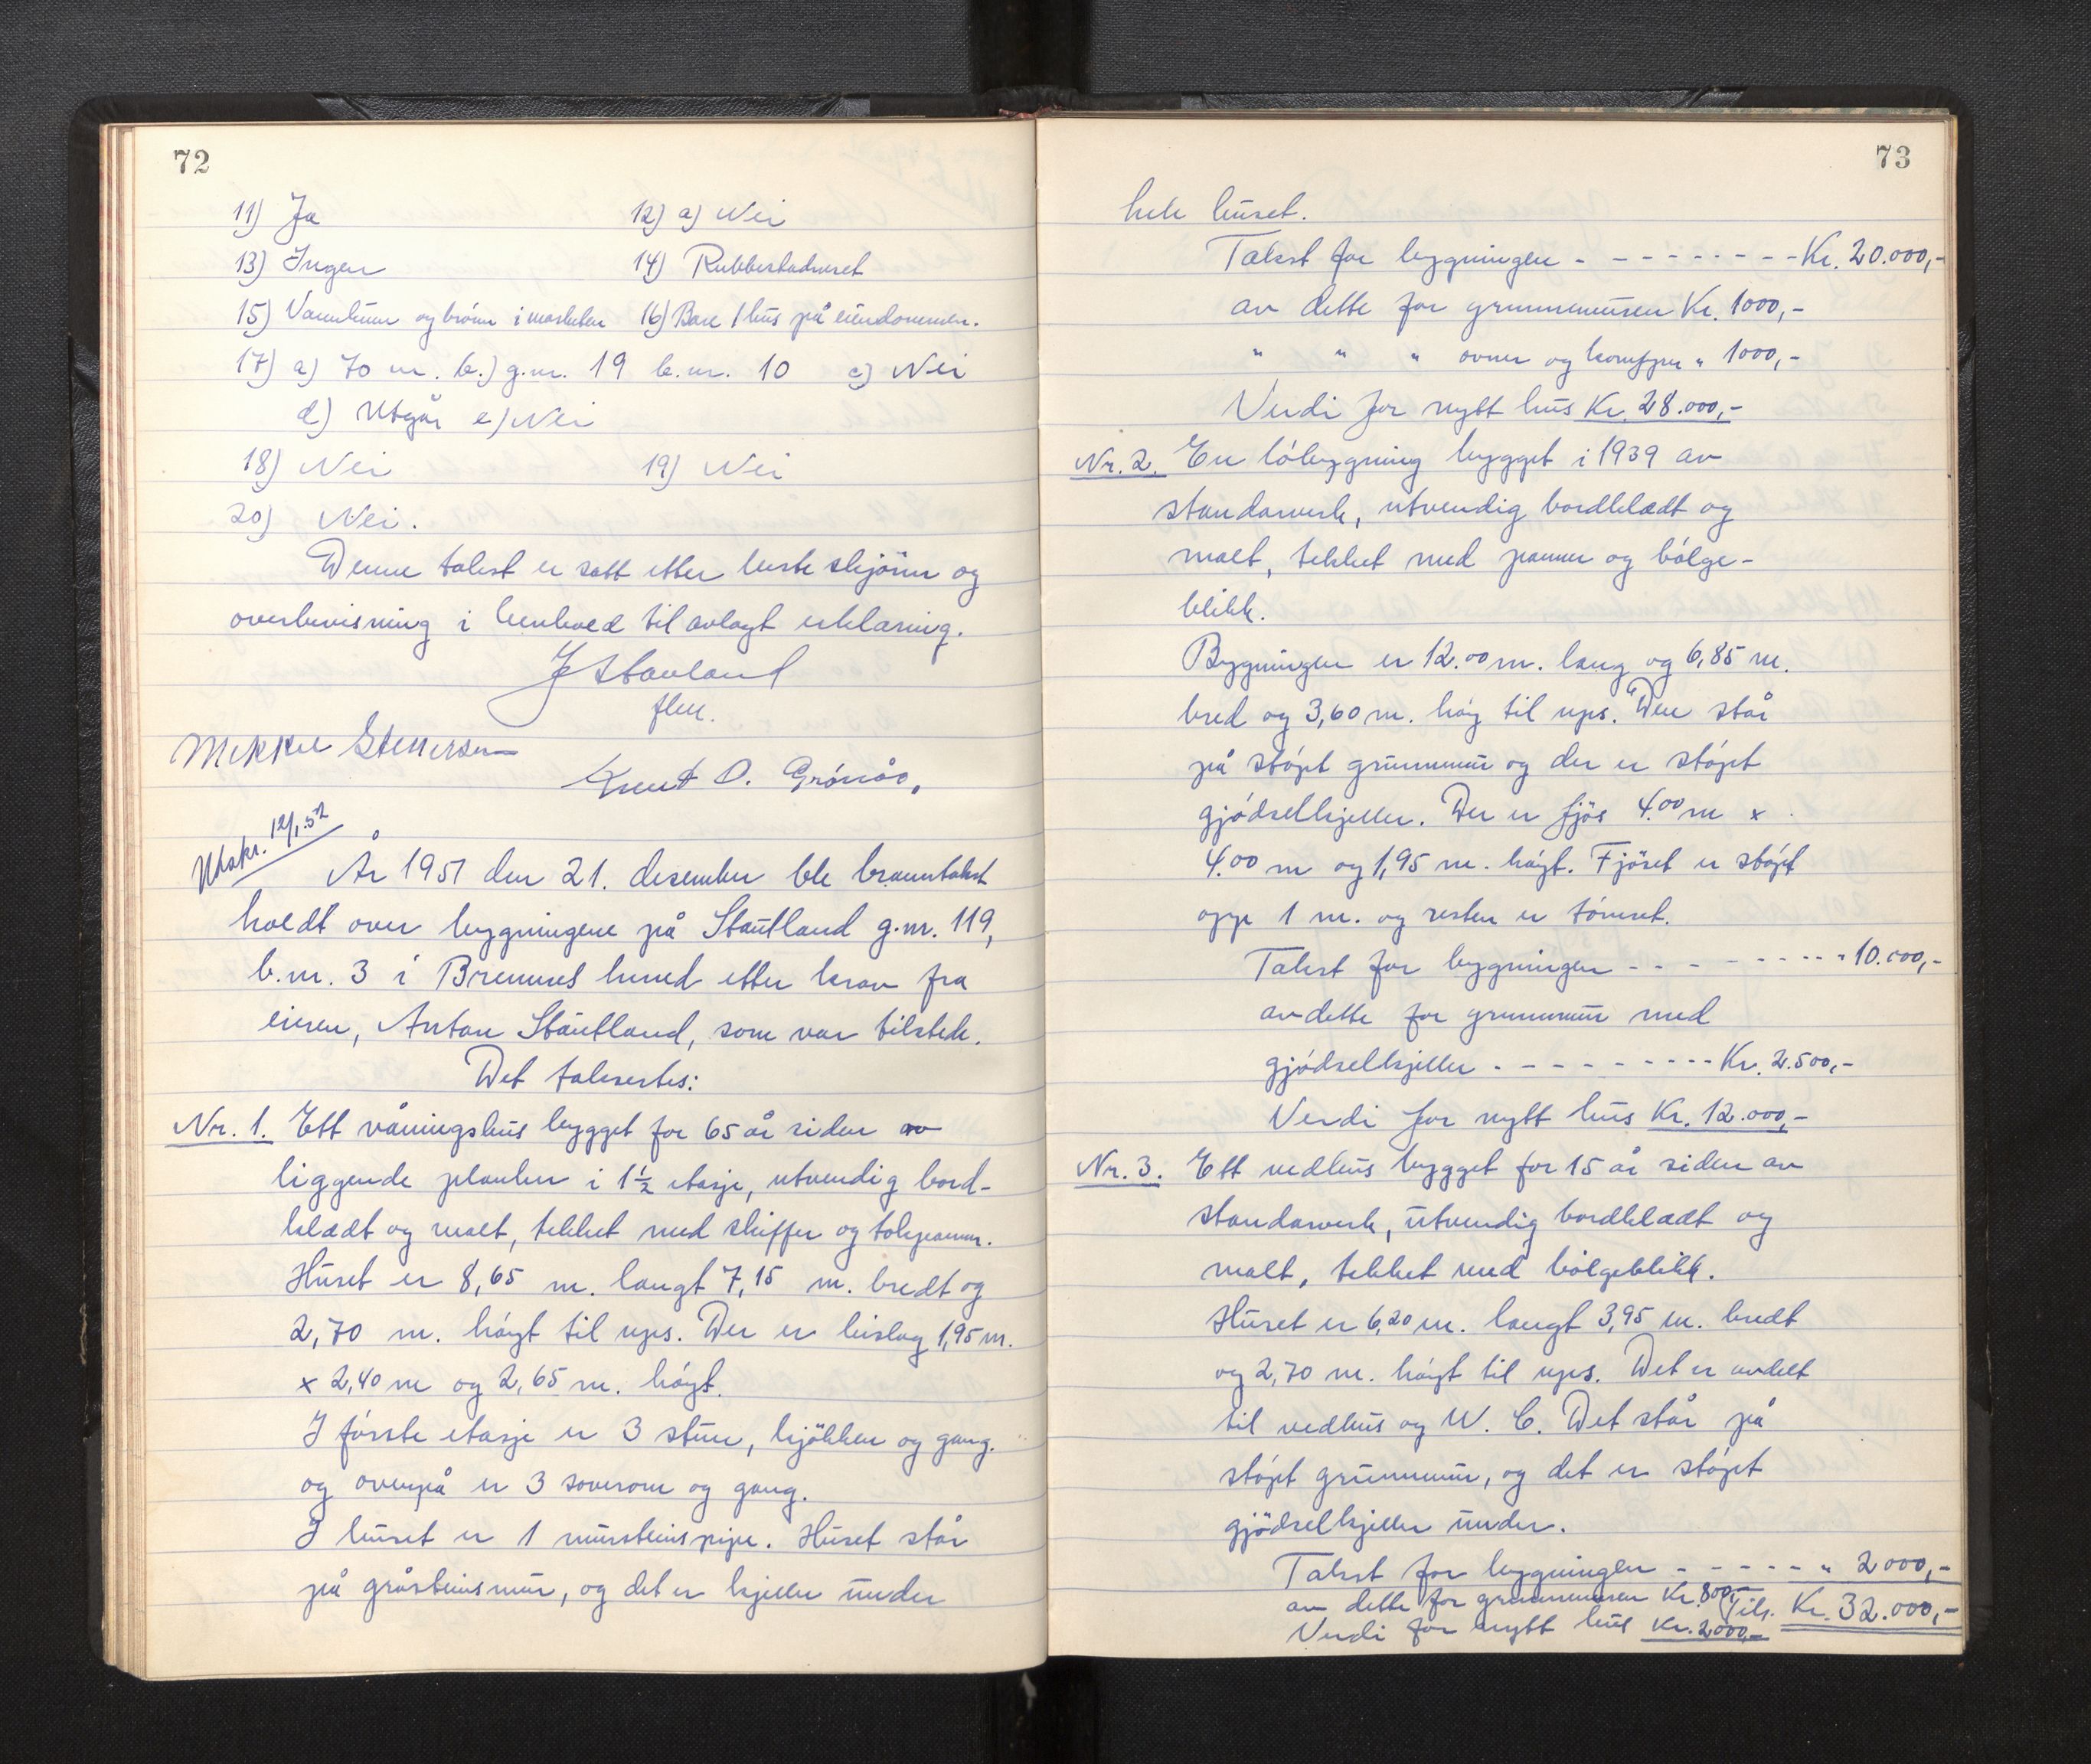 72
11) Ja 12) a) Nei
13) Ingen 14) Rubbestadneset
15) Vannkum og brönn i marken 16) Bare 1 hus på eiendommen.
17) a) 70 m. b.) g.nr. 19 b.nr. 10 c) Nei
d) Utgår e) Nei
18) Nei 19) Nei
20) Nei.
Denne takst er satt etter beste skjönn og
overbevisning i henhold til avlagt erklæring.
J Stavland
flm.
Mikkel Steinersen
Knut O. Grönås,
Utskr. 12/1.52
År 1951 den 21. desember ble branntakst
holdt over bygningene på Stautland g.nr. 119,
b.nr. 3 i Bremnes herred etter krav fra
eieren, Anton Stautland, som var tilstede.
Det takseres:
Nr. 1. Ett våningshus bygget for 65 år siden av
liggende planker i 1½ etasje, utvendig bord-
klædt og malt, tekket med skiffer og takpanner.
Huset er 8,65 m. langt 7,15 m. bredt og
2,70 m. höyt til ups. Der er bislag 1,95 m.
x 2,40 m og 2,65 m. höyt.
I förste etasje er 3 stuer, kjökken og gang.
og ovenpå er 3 soverom og gang.
I huset er 1 mursteinspipe. Huset står
på gråsteinsmur, og det er kjeller under
73
hele huset.
Takst for bygningen - - - - - - - - Kr. 20.000,-
av dette for grunnmuren Kr. 1000,-
" " " ovner og komfyrer " 1000,-
Verdi for nytt hus Kr. 28.000,-
Nr. 2. En löbygning bygget i 1939 av
standarverk, utvendig bordklædt og
malt, tekket med panner og bölge-
blikk.
Bygningen er 12.00 m. lang og 6,85 m.
bred og 3,60 m. höy til ups. Den står
på stöpt grunnmur og der er stöpt
gjödselkjeller. Der er fjös 4.00 m x
4.00 m og 1,95 m. höyt. Fjöset er stöpt
opp 1 m. og resten er tömret.
Takst for bygningen - - - - - - - - " 10.000,-
av dette for grunnmur med
gjödselkjeller - - - - - - - - - Kr. 2.500,-
Verdi for nytt hus Kr. 12.000,-
Nr. 3. Ett vedhus bygget for 15 år siden av
standarverk, utvendig bordklædt og
malt, tekket med bölgeblikk.
Huset er 6,20 m. langt 3,95 m. bredt
og 2,70 m. höyt til ups. Det er avdelt
til vedhus og W. C. Det står på
stöpt grunnmur, og det er stöpt
gjödselkjeller under.
Takst for bygningen - - - - - - " 2000,-
av dette for grunnmuren Kr. 800,- Tils. Kr. 32.000,-
Verdi for nytt hus Kr. 2000,-